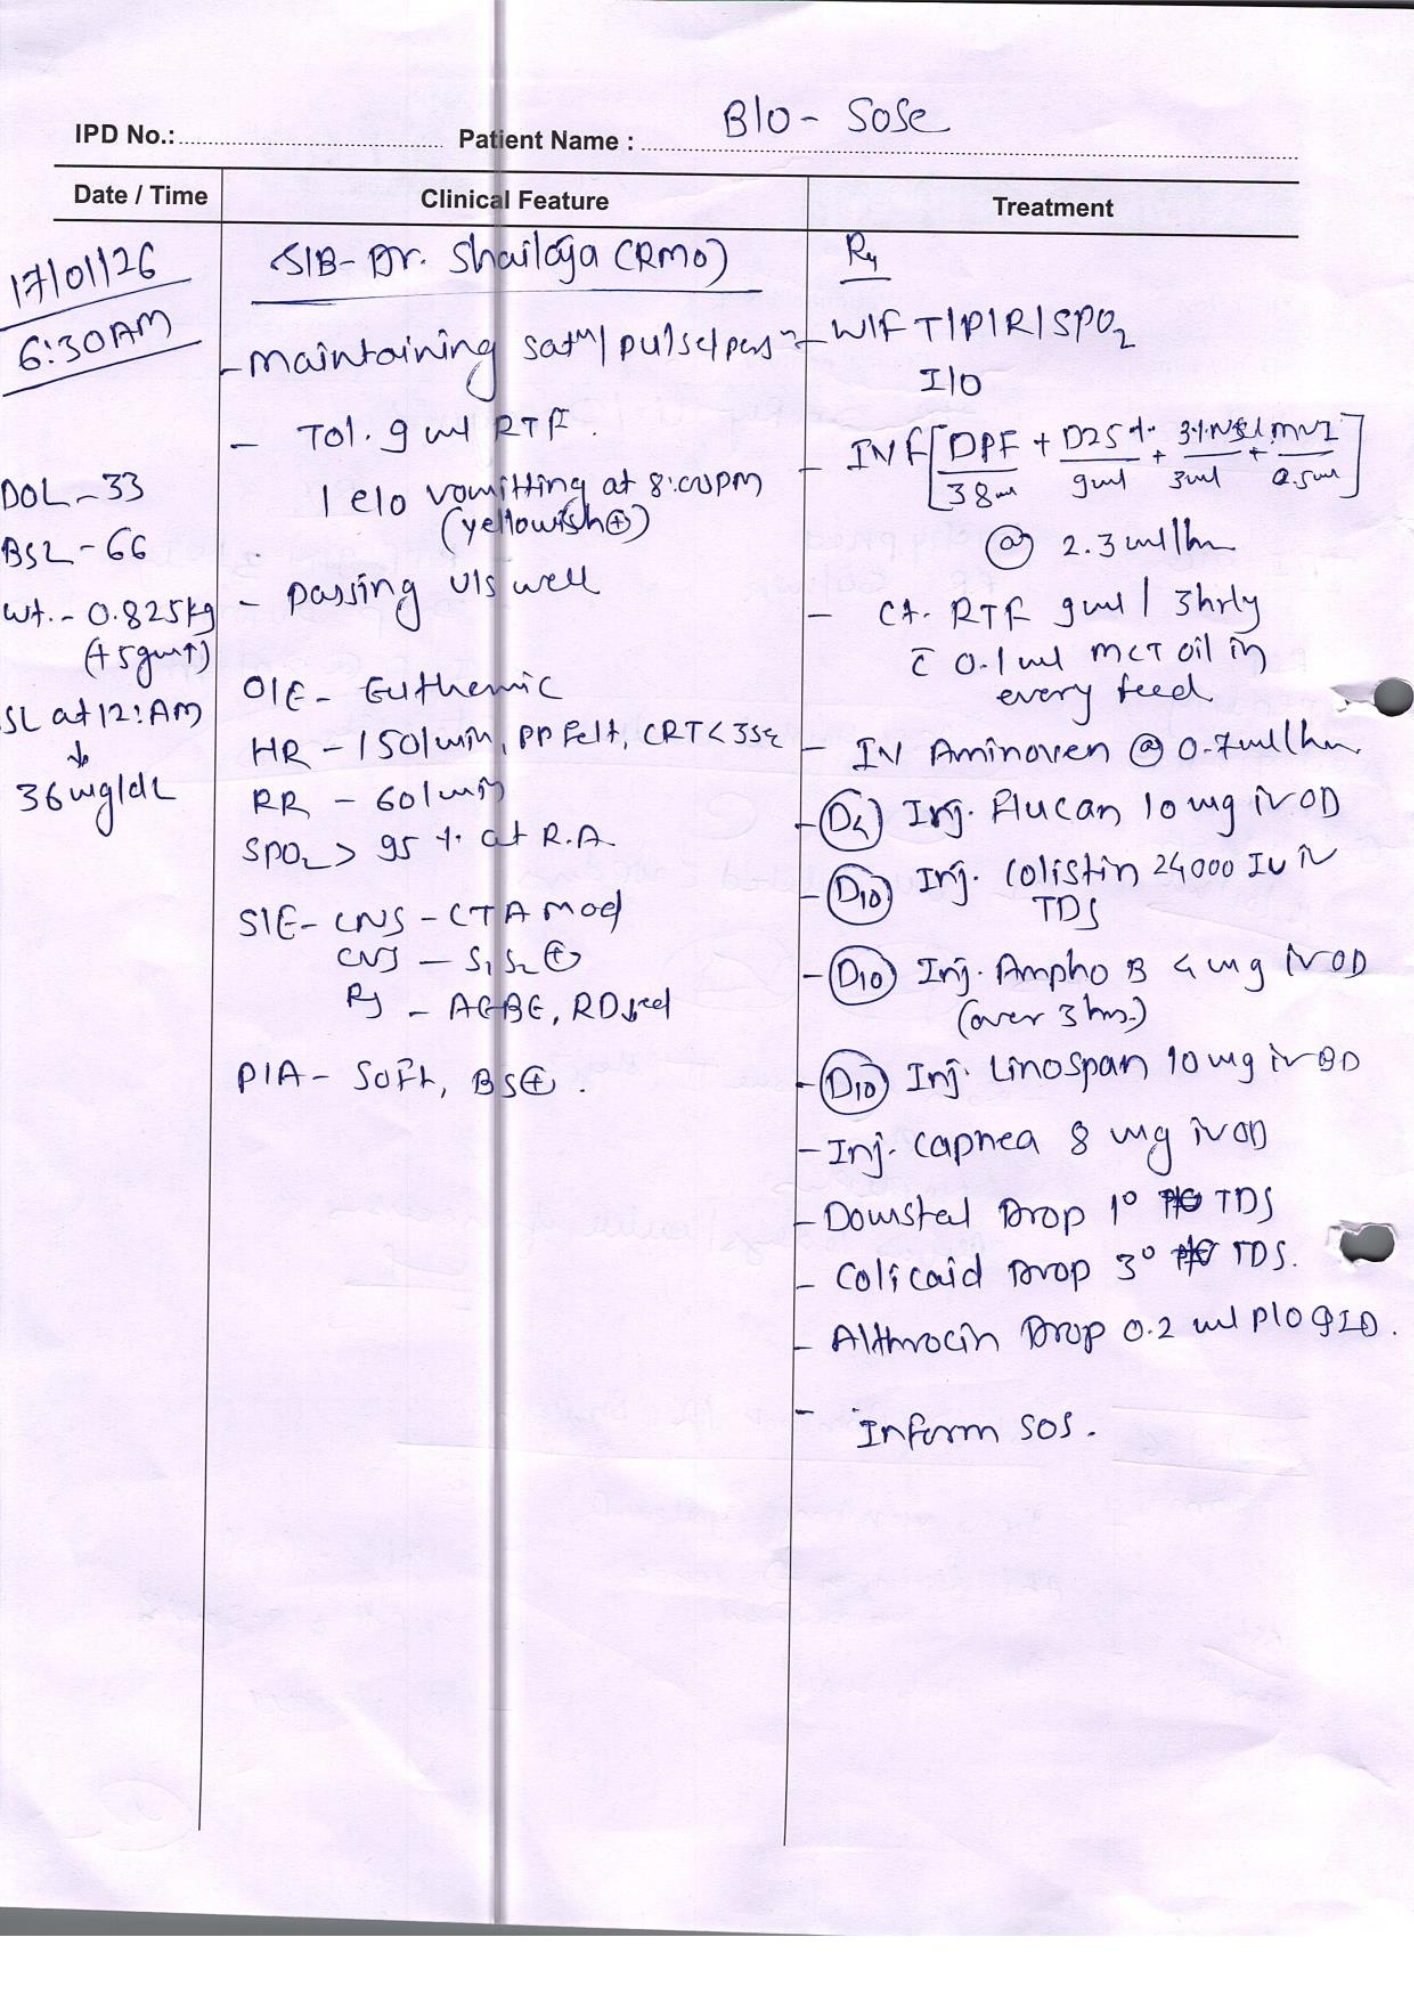 IPD No.: Patient Name : B/O - Sose
Date / Time Clinical Feature Treatment
17/01/26
6:30AM
DOL - 33
BSL - 66
wt. - 0.825kg
(+5gm↑)
SL at 12:AM
↓
36mg/dL
S/B - Dr. Shailaja (RMO)
- maintaining satn/ pulse/persn
- Tol. 9 ml RTF.
1 e/o vomitting at 8:00PM
(yellowish⊕)
- passing u/s well
O/E - Euthemic
HR - 150/min, PP Felt, CRT<3sec
RR - 60/min
SPO2 > 95 % at R.A.
S/E - CNS - CTA Mod
CVS - S1S2 ⊕
RS - AEBE, RD↓ced
P/A - Soft, BS⊕.
Rx
- W/F T/P/R/SPO2
I/O
- IVF [DPF/38ml + D25%/9ml + 3%/3ml + MVI/0.5ml]
@ 2.3ml/hr
- Ct. RTF 9ml / 3hrly
c̄ 0.1ml MCT oil in
every feed
- IV Aminoven @ 0.7ml/hr.
- Inj. Flucan 10mg iv OD
- (D10) Inj. Colistin 24000 IU iv
TDS
- (D10) Inj. Ampho B 4mg iv OD
(over 3hrs.)
- (D10) Inj. Linospan 10mg iv BD
- Inj. Capnea 8 mg iv OD
- Domstal Drop 1° TDS
- Colicaid Drop 3° TDS.
- Althrocin Drop 0.2 ml P/O QID.
- Inform SOS.